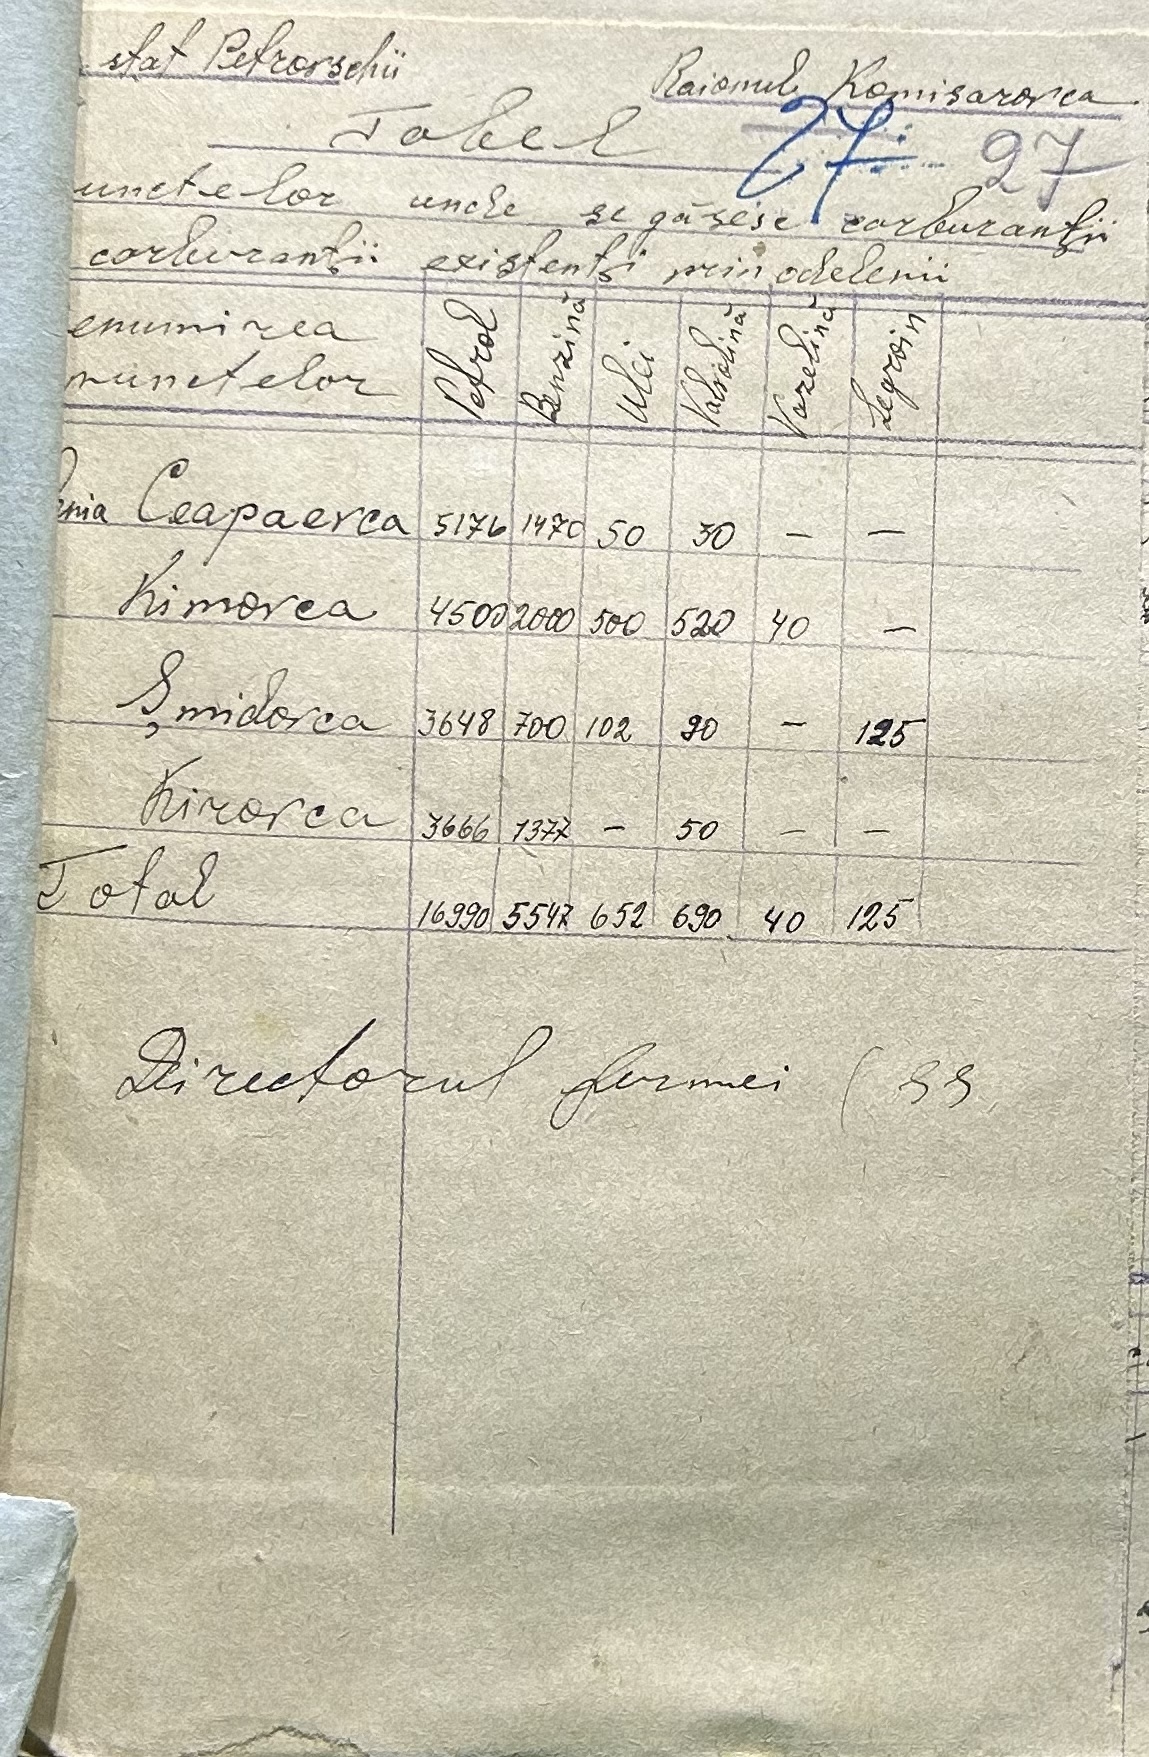 stat Petrovschii Raionul Komisarovca
Tabel 27 27
unctelor unde se găsesc carburanții
carburanții existenți prin odelenii
enumirea punctelor Petrol Benzină Ulei Valvolină Vazelină Legroin
enia Ceapaevca 5176 1470 50 30 — —
Kimovca 4500 2000 500 520 40 —
Șmidovca 3648 700 102 90 — 125
Kirovca 3666 1377 — 50 — —
Total 16990 5547 652 690 40 125
Directorul fermei (ss